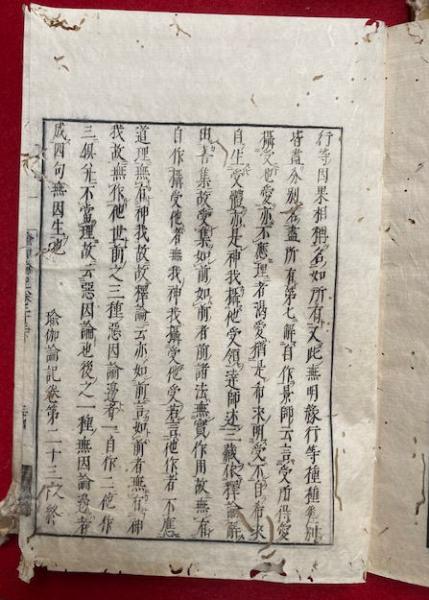 行等因果相稱名如所有又此無明緣行等種種差別
皆盡分別名盡所有第七解自作景師云言受所得愛
攝受也愛亦不應理者渴愛猶是希求明愛不甘希求
自生受體亦是神我攝他受領達師述三藏依釋論解
由 集故受集如前如前者前諸法無實作用故無有
自作攝受他者無我神我攝受他受若言他作者不應
道理無有神我故故釋論云亦如前言如前者無有神
我故無作他世前之三種惡因論邊者一自作二他作
三俱並不當理故云惡因論也後之一種無因論邊者
成四句無因生也
瑜伽論記卷第二十三之終